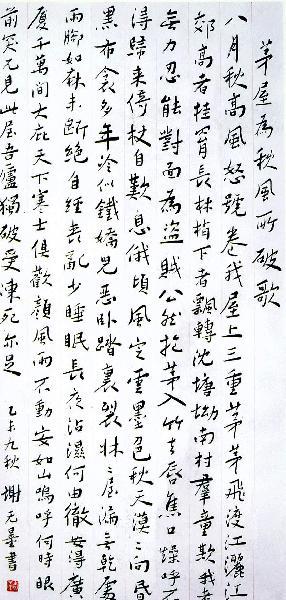 茅屋為秋風所破歌
八月秋高風怒號卷我屋上三重茅茅飛渡江灑江
郊高者挂罥長林梢下者飄轉沈塘坳南村羣童欺我老
無力忍能對面為盜賊公然抱茅入竹去唇焦口燥呼不
得歸來倚杖自歎息俄頃風定雲墨色秋天漠〻向昏
黑布衾多年冷似鐵嬌兒惡卧踏裏裂牀〻屋漏無乾處
雨腳如麻未斷絕自經喪亂少睡眠長夜沾濕何由徹安得廣
廈千萬間大庇天下寒士俱歡顏風雨不動安如山嗚呼何時眼
前突兀見此屋吾廬獨破受凍死亦足 乙未九秋 謝无量書